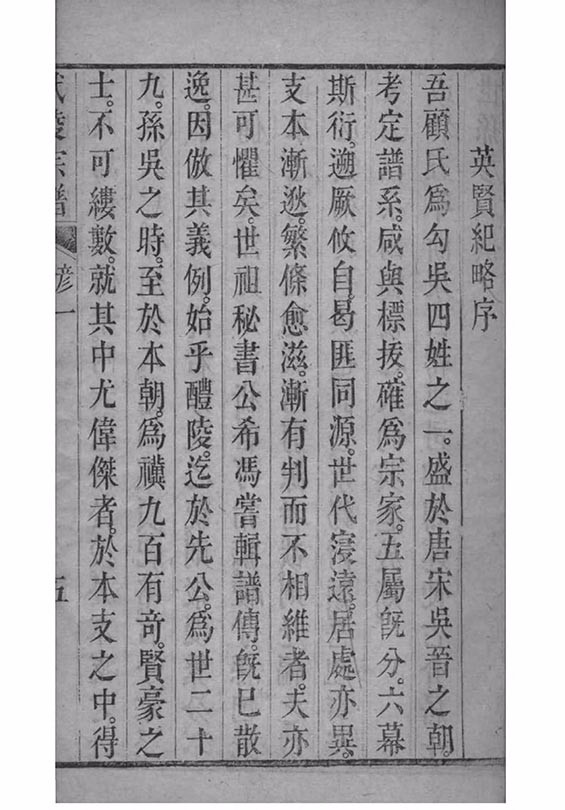 英賢紀略序
吾顧氏爲勾吳四姓之一。盛於唐宋吳晉之朝。
考定譜系。咸與標拔。確爲宗家。五屬旣分。六幕
斯衍。遡厥攸自。曷匪同源。世代寖遠。居處亦異。
支本漸逖。繁條愈滋。漸有判而不相維者。夫亦
甚可懼矣。世祖秘書公希馮嘗輯譜傳。旣已散
逸。因倣其義例。始乎醴陵。迄於先公。爲世二十
九。孫吳之時。至於本朝。爲禩九百有奇。賢豪之
士。不可縷數。就其中尤偉傑者。於本支之中。得
武陵宗譜 一 五